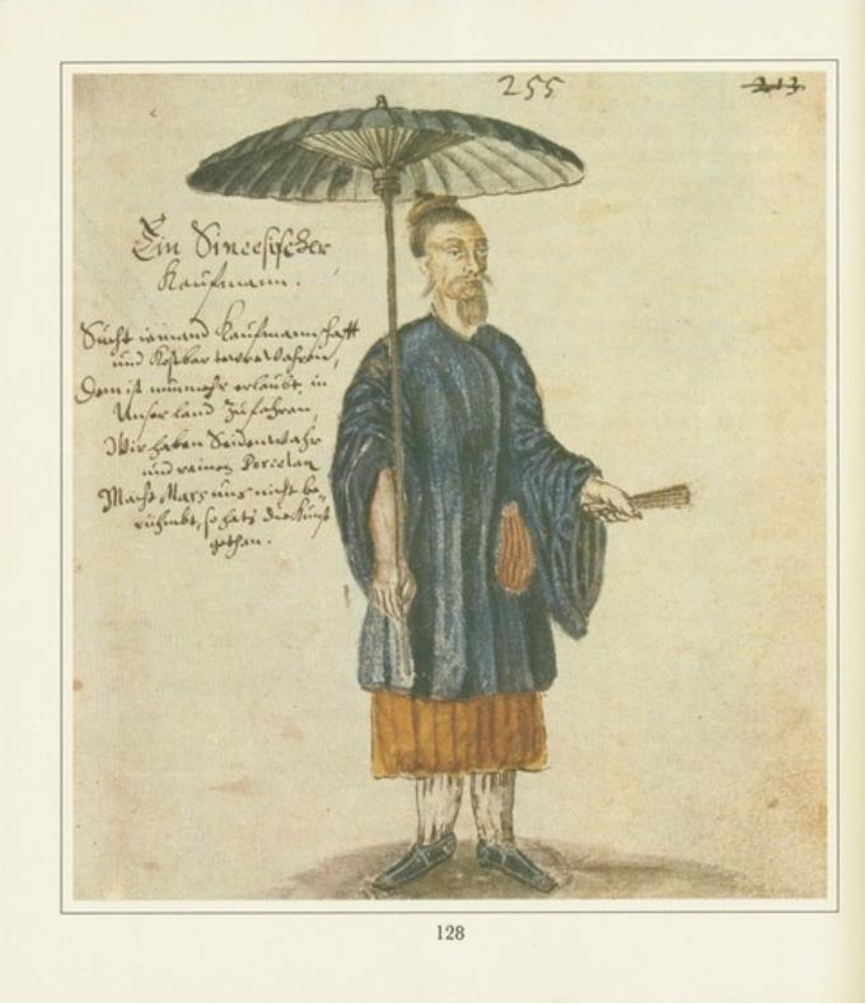 255
213
Ein Sineesischer
Kaufmann.
Sucht iemand Kaufmannschafft
und Kostbar teure Wahren,
Dem ist nunmehr erlaubt, in
Unser land zufahren,
Wir haben Seidenwahr
und reines Porcelan
Macht Mars uns nicht be-
rühmbt, so hats die Kunst
gethan.
128